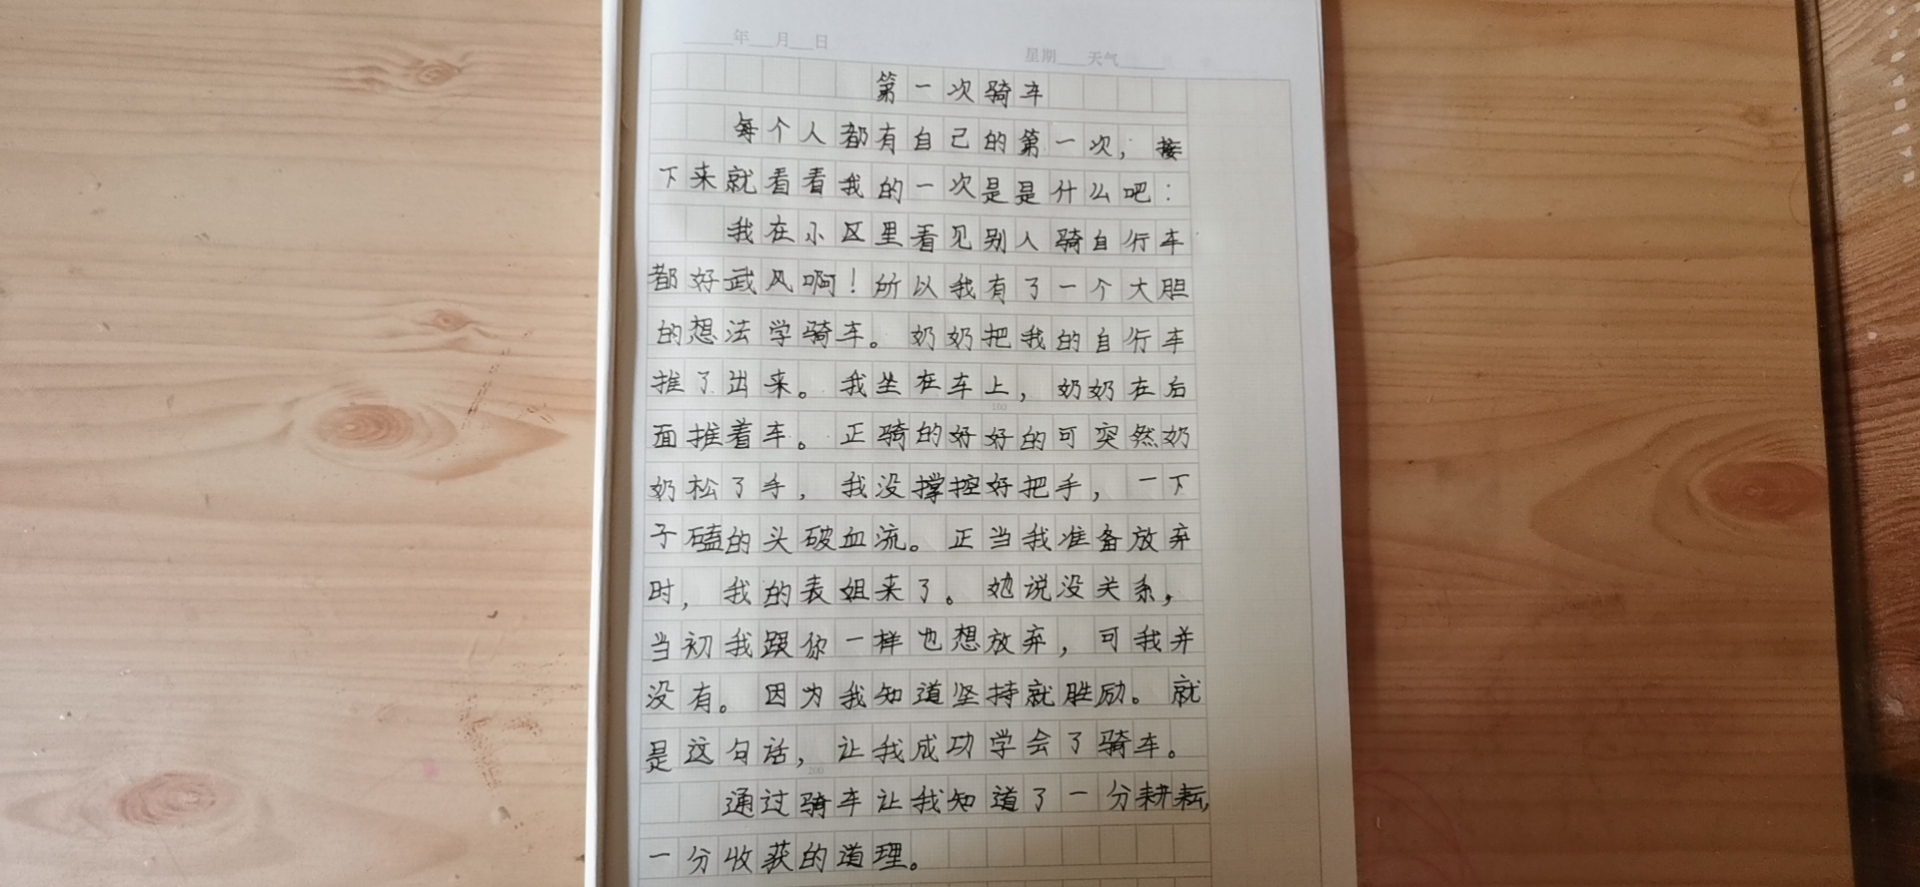 ____年__月__日 星期___天气_____
第一次骑车
每个人都有自己的第一次，接
下来就看看我的一次是是什么吧：
我在小区里看见别人骑自行车
都好武风啊！所以我有了一个大胆
的想法学骑车。奶奶把我的自行车
推了出来。我坐在车上，奶奶在后
100
面推着车。正骑的好好的可突然奶
奶松了手，我没撑控好把手，一下
子磕的头破血流。正当我准备放弃
时，我的表姐来了。她说没关系，
当初我跟你一样也想放弃，可我并
没有。因为我知道坚持就胜励。就
是这句话，让我成功学会了骑车。
200
通过骑车让我知道了一分耕耘，
一分收获的道理。